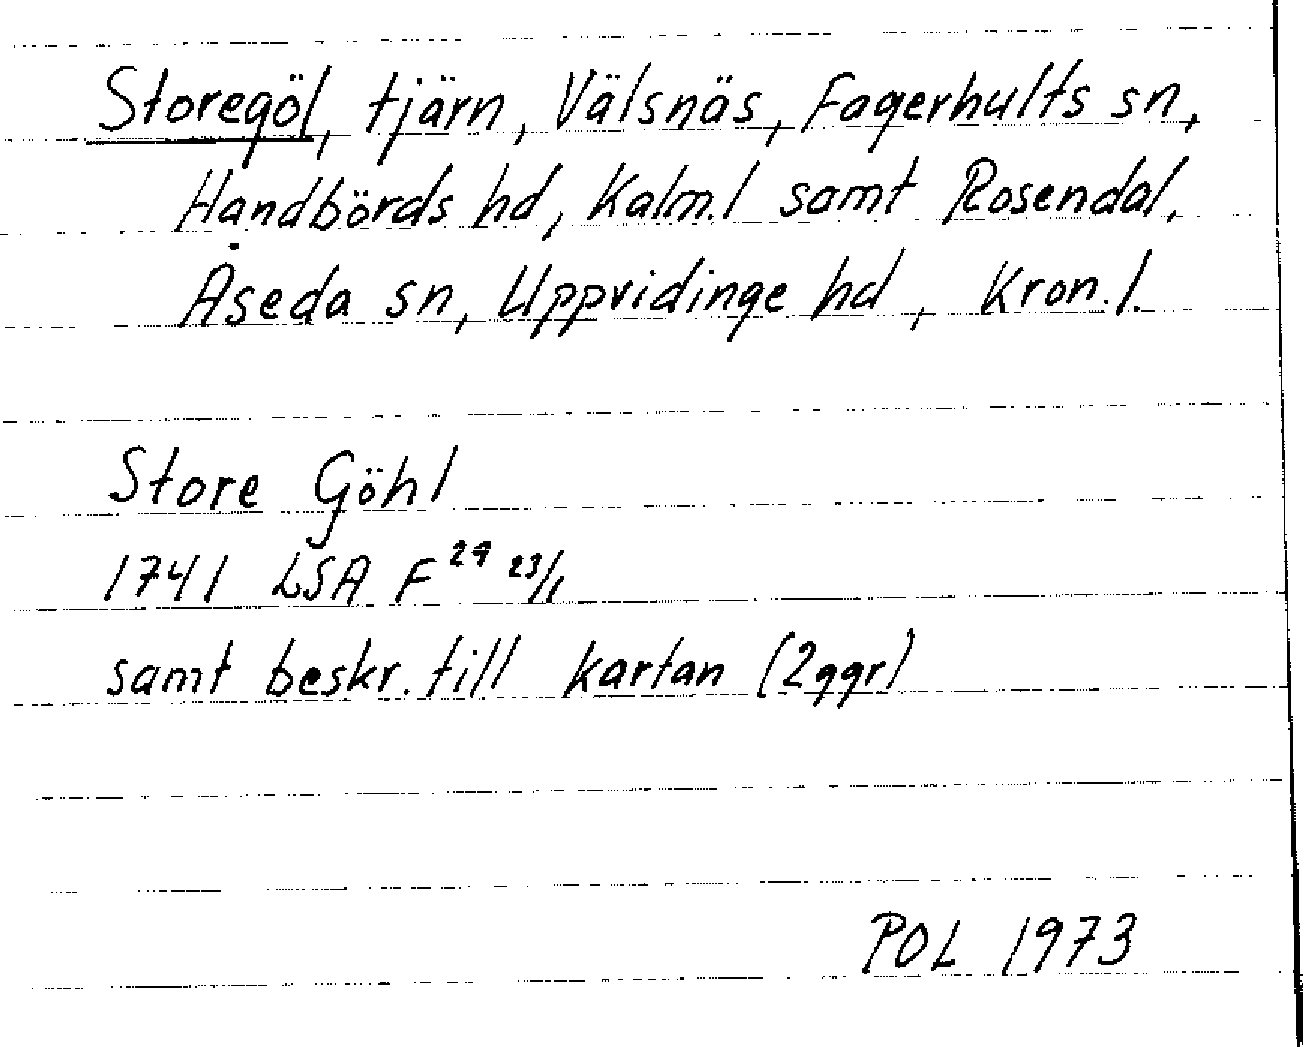 Storegöl, tjärn, Välsnäs, Fagerhults sn,
Handbörds hd, Kalm.l samt Rosendal,
Åseda sn, Uppvidinge hd, Kron.l.
Store Göhl
1741 LSA F 29 23/1
samt beskr. till kartan (2ggr)
POL 1973